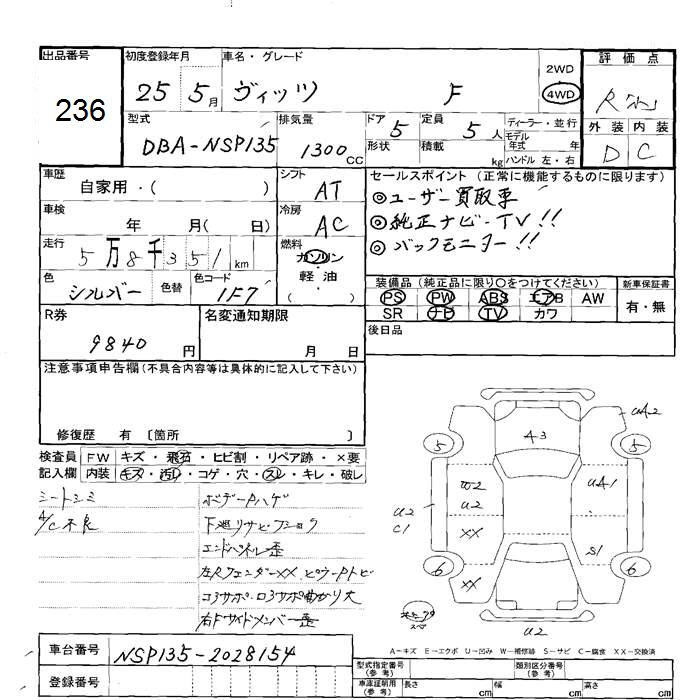 出品番号
236
初度登録年月
25 5月
車名・グレード
ヴィッツ F
2WD
4WD
評価点
外装 内装
D C
型式
DBA-NSP135
排気量
1300CC
ドア 5
形状
定員 5人
積載 kg
ディーラー・並行
モデル年式 年
ハンドル 左・右
車歴
自家用・( )
シフト
AT
車検
年 月( 日)
冷房
AC
走行
5万8千351km
燃料
ガソリン
軽油
( )
色
シルバー
色替
色コード
1F7
セールスポイント (正常に機能するものに限ります)
◎ユーザー買取車
◎純正ナビ・TV!!
◎バックモニター!!
装備品 (純正品に限り○をつけてください)
新車保証書
PS PW ABS エアB AW
有・無
SR ナビ TV カワ
R券
9840円
名変通知期限
月 日
後日品
注意事項申告欄(不具合内容等は具体的に記入して下さい)
修復歴 有 〔箇所 〕
検査員記入欄
FW キズ・飛石・ヒビ割・リペア跡・×要
内装 キズ・汚れ・コゲ・穴・スレ・キレ・破レ
シートシミ
A/C不良
ボデーPハゲ
下廻りサビ・フショク
エンドパネル歪
左Rフェンダー××
コアサポ・ロアサポ曲がり大
右Fサイドメンバー歪
UA2
5 A3 5
W2
U2
UA1
U2
C1
XX
S1
6 XX 6
U2
A-キズ E-エクボ U-凹み W-補修跡 S-サビ C-腐食 XX-交換済
車台番号
NSP135-2028154
登録番号
型式指定番号(参考)
類別区分番号(参考)
車庫証明用(参考)
長さ cm
幅 cm
高さ cm